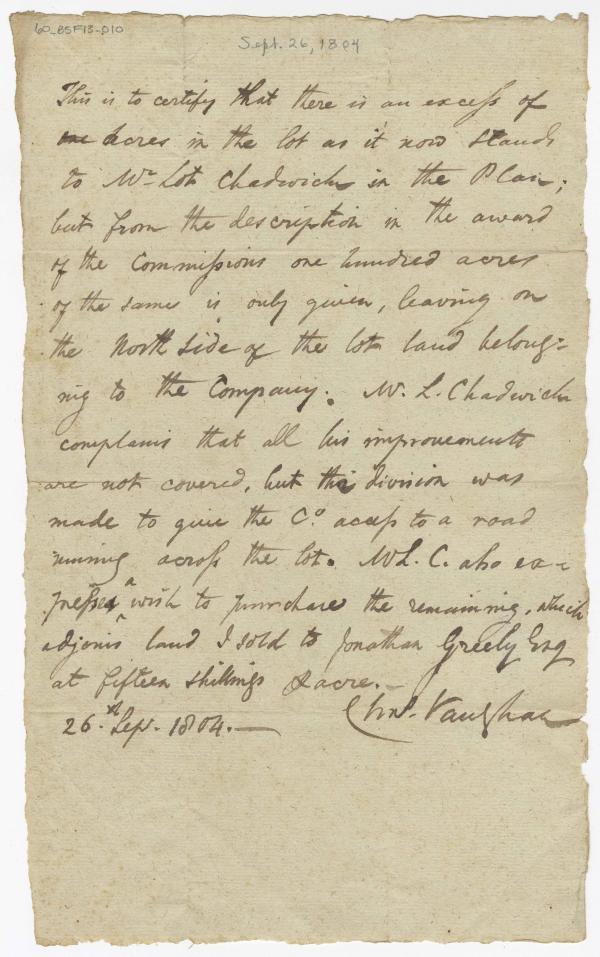 60_B5F13_010
Sept. 26, 1804
This is to certify that there is an excess of
acres in the lot as it now stands
to Mr Lot Chadwick in the Plan;
but from the description in the award
of the Commissions one hundred acres
of the same is only given, leaving on
the North side of the lot land belong=
ing to the Company. Mr. L. Chadwick
complains that all his improvements
are not covered, but this division was
made to give the Co. access to a road
running across the lot. Mr L. C. also ex=
presses a wish to purchase the remaining, which
adjoins land I sold to Jonathan Greely Esq
at fifteen shillings & acre.—
Chas. Vaughan
26.th Sep. 1804.—